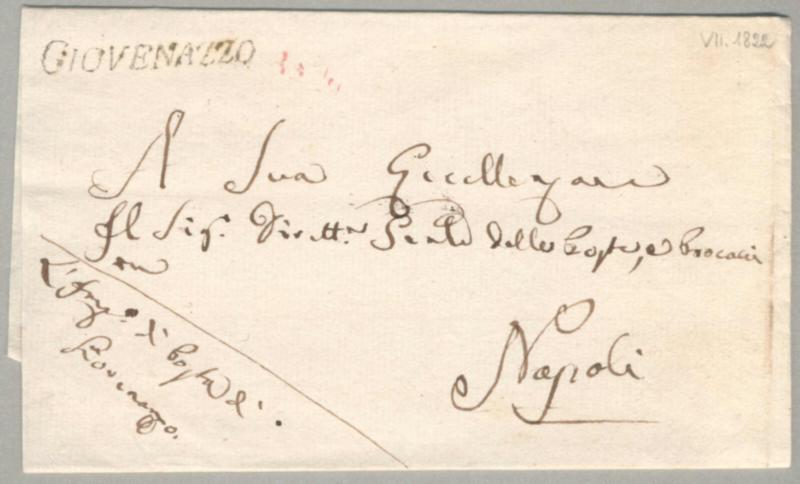 GIOVENAZZO
VII. 1822
A Sua Eccellenza
Il Sig.r Dirett.re Gen.le delle Poste, e Procacci
in
Napoli
di Posta di
Giovenazzo.